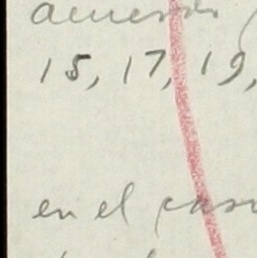 acuerdo
15, 17, 19,
en el caso